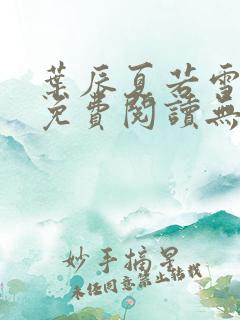 葉辰夏若雪
免費閱讀無
妙手摘星
未經同意禁止轉載